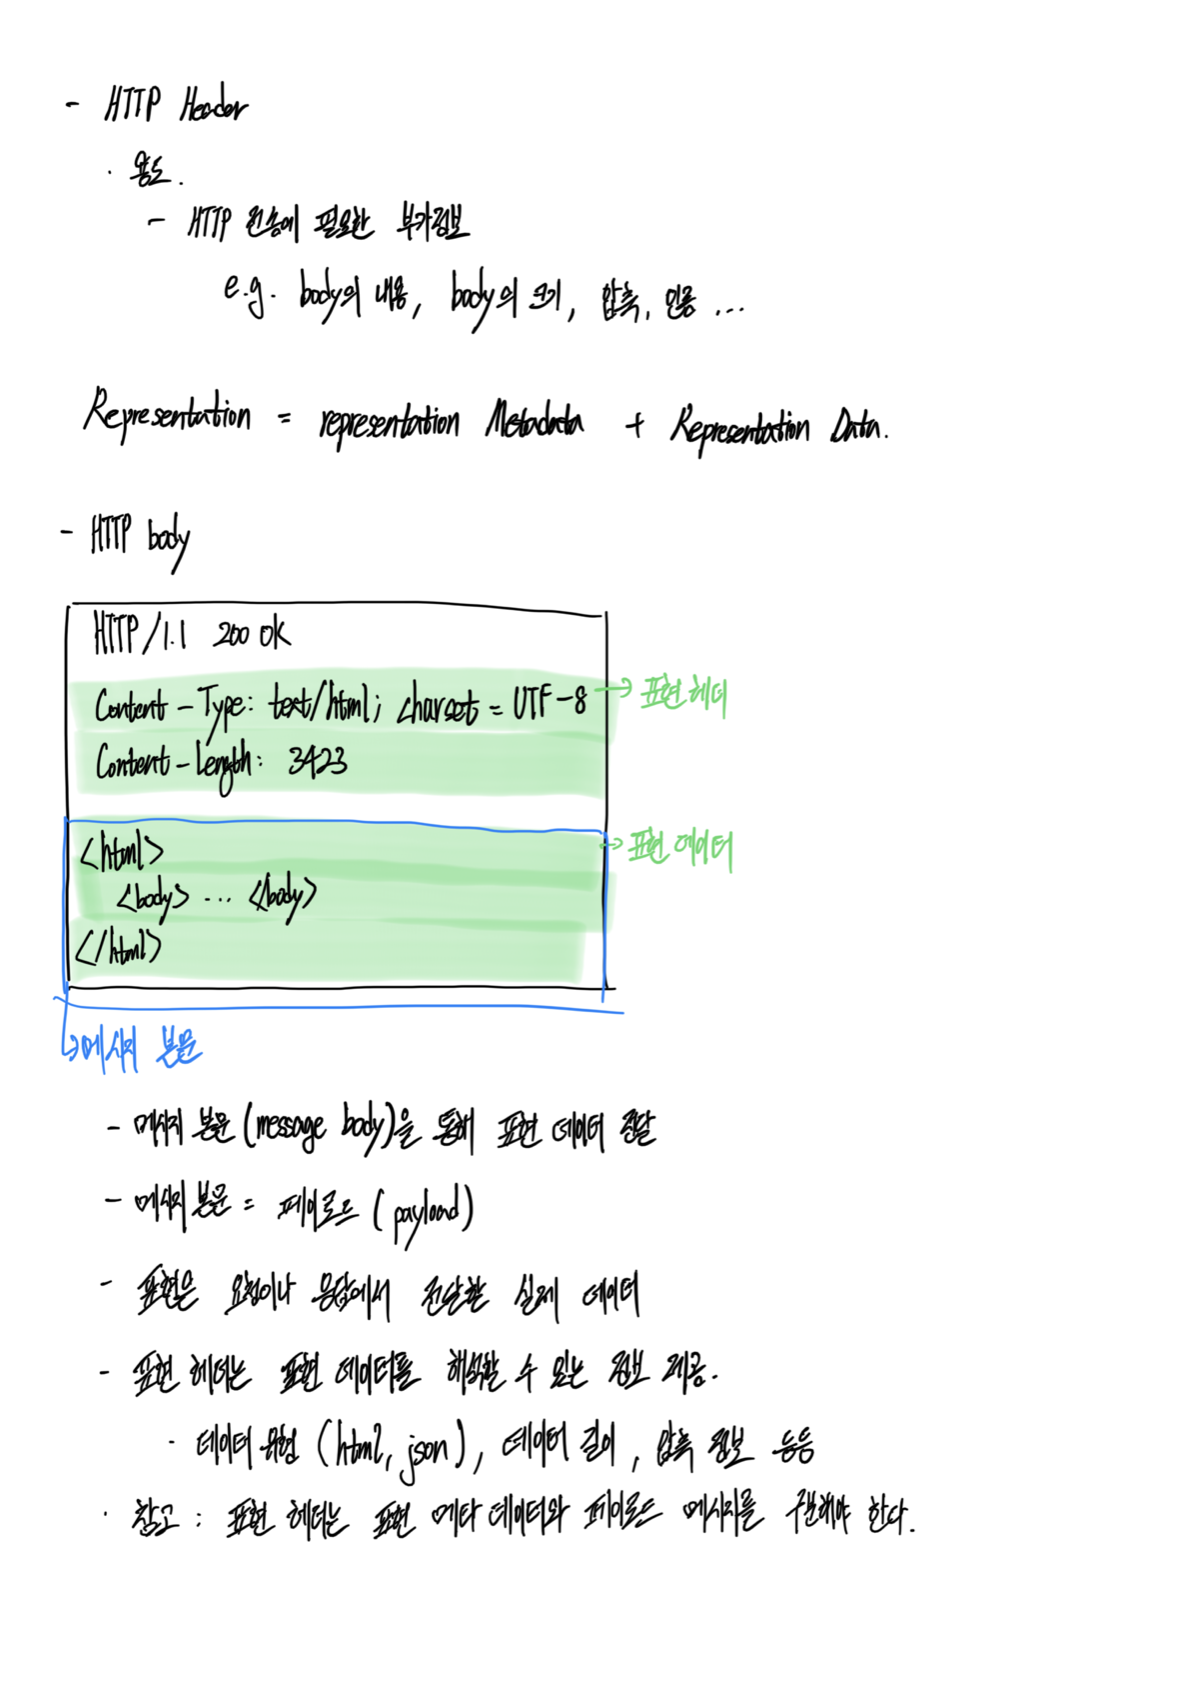 - HTTP Header
· 용도.
- HTTP 전송에 필요한 부가정보
e.g. body의 내용, body의 크기, 압축, 인증 ...
Representation = representation Metadata + Representation Data.
- HTTP body
HTTP/1.1 200 OK
Content-Type: text/html; charset = UTF-8 → 표현 헤더
Content-Length: 3423
<html> → 표현 데이터
<body> ... </body>
</html>
↳ 메시지 본문
- 메시지 본문 (message body)을 통해 표현 데이터 전달
- 메시지 본문 = 페이로드 (payload)
- 표현은 요청이나 응답에서 전달할 실제 데이터
- 표현 헤더는 표현 데이터를 해석할 수 있는 정보 제공.
· 데이터 유형 (html, json), 데이터 길이, 압축 정보 등등
· 참고 : 표현 헤더는 표현 메타 데이터와 페이로드 메시지를 구분해야 한다.